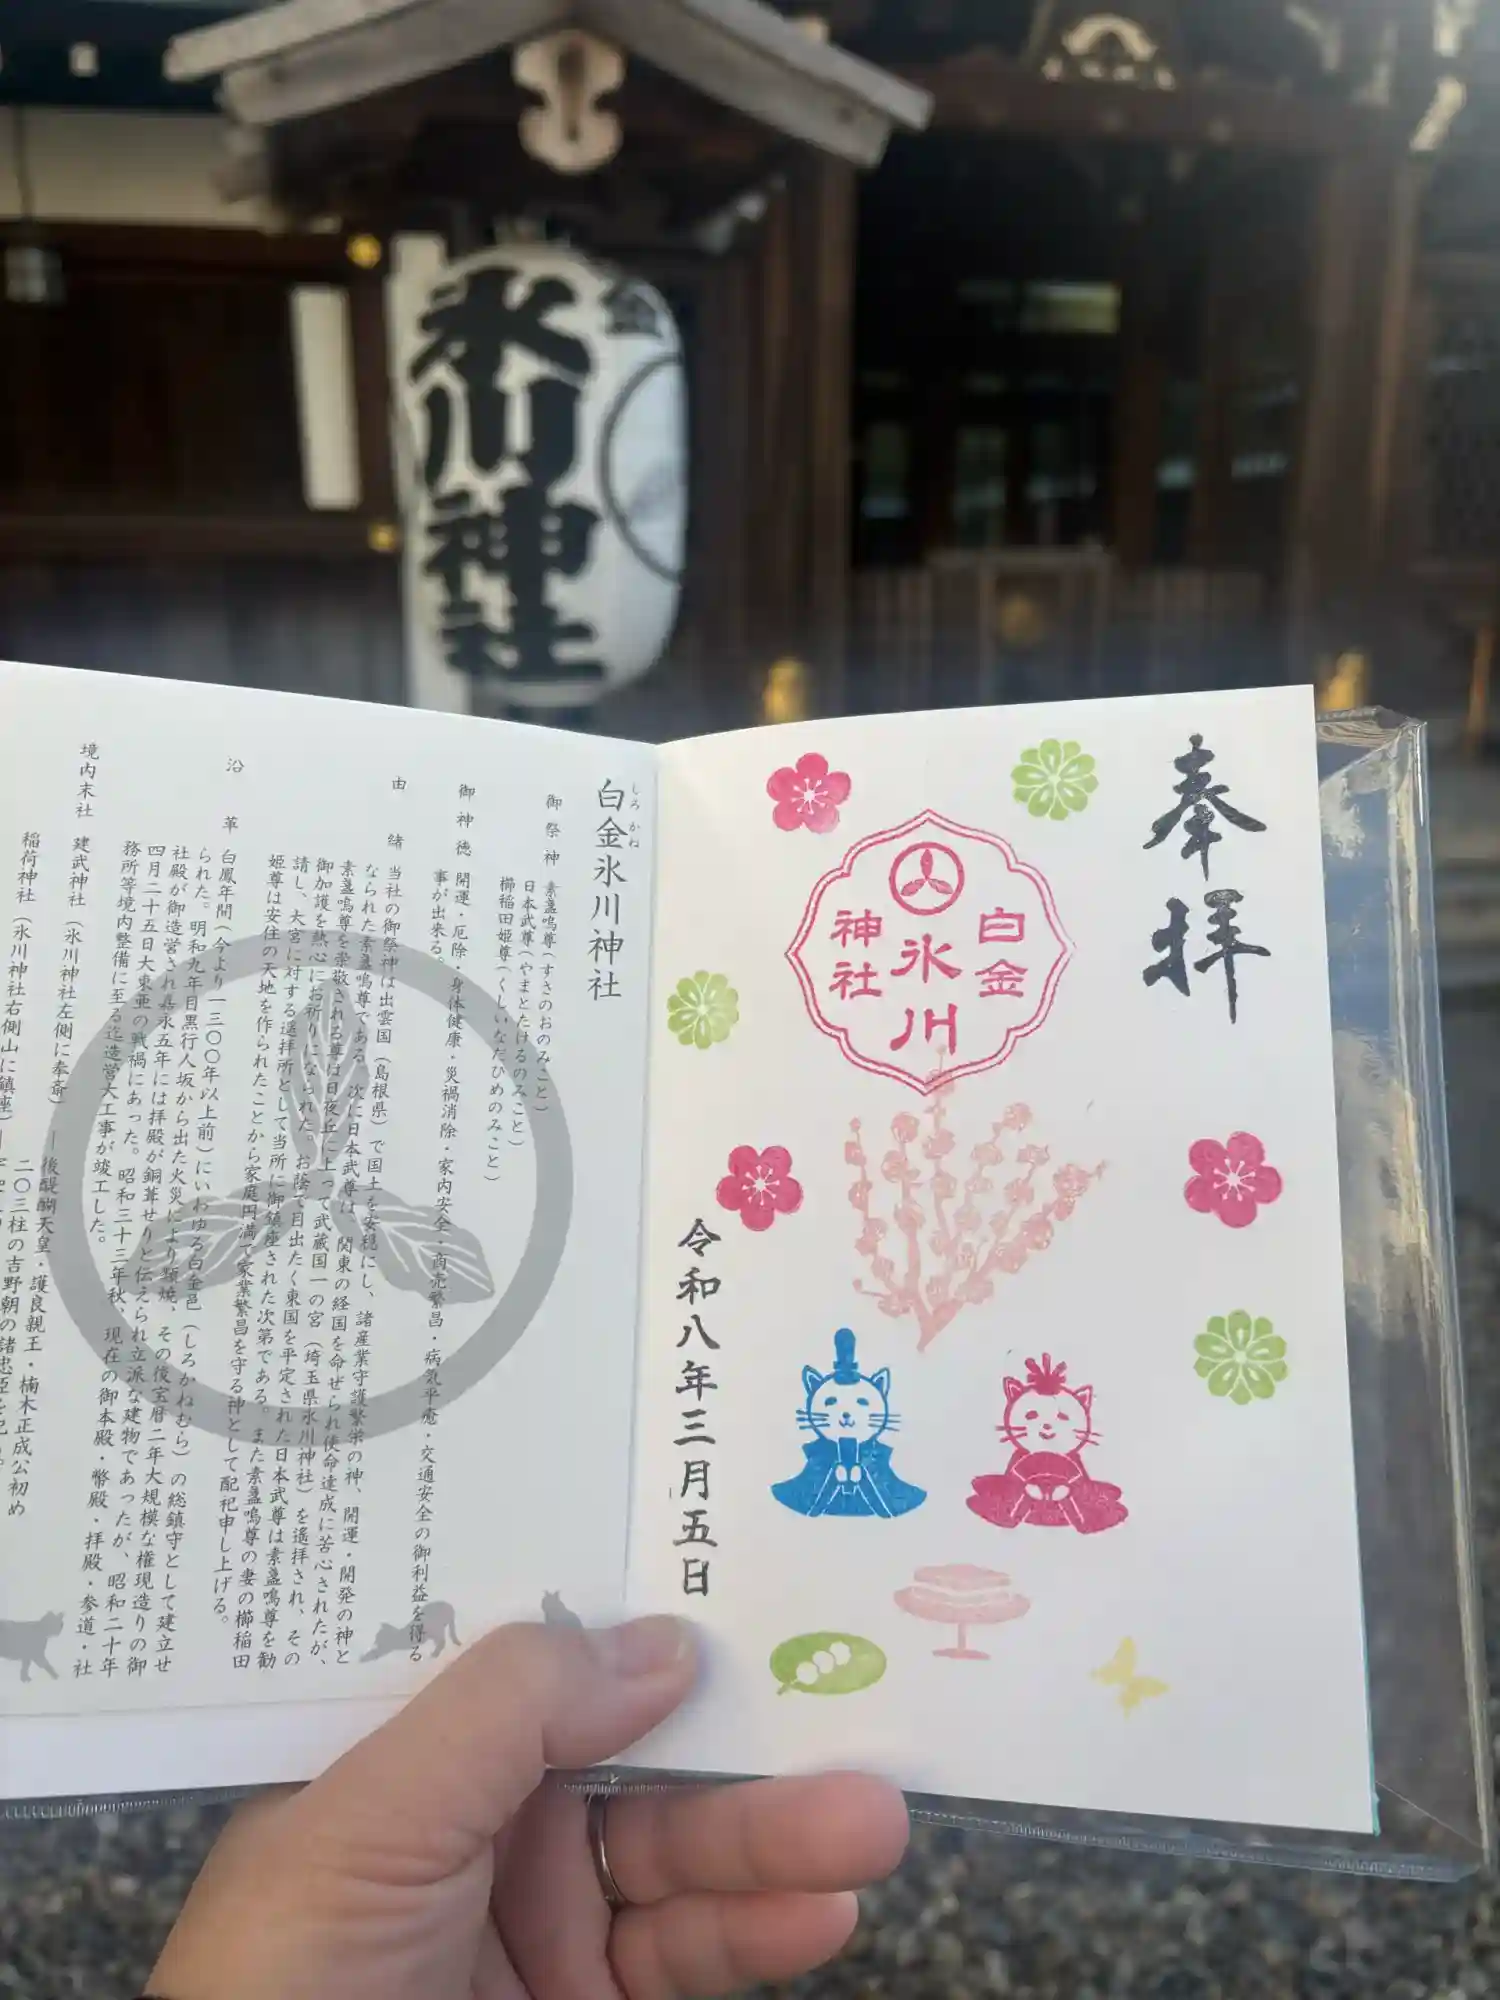 氷川神社
奉拝
白金
氷川
神社
令和八年三月五日
しろかね
白金氷川神社
御祭神 素盞嗚尊(すさのおのみこと)
日本武尊(やまとたけるのみこと)
櫛稲田姫尊(くしいなだひめのみこと)
御神徳 開運・厄除・身体健康・災禍消除・家内安全・商売繁昌・病気平癒・交通安全の御利益を得る
事が出来る。
由緒 当社の御祭神は出雲国(島根県)で国土を安穏にし、諸産業守護繁栄の神、開運・開発の神と
なられた素盞嗚尊である。次に日本武尊は、関東の経国を命ぜられ使命達成に苦心されたが、
素盞嗚尊を崇敬される尊は日夜丘に上って武蔵国一の宮(埼玉県氷川神社)を遙拝され、その
御加護を熱心にお祈りになられた。お蔭で目出たく東国を平定された日本武尊は素盞嗚尊を勧
請し、大宮に対する遥拝所として当所に御鎮座された次第である。また素盞嗚尊の妻の櫛稲田
姫尊は安住の天地を作られたことから家庭円満で家業繁昌を守る神として配祀申し上げる。
沿革 白鳳年間(今より一三〇〇年以上前)にいわゆる白金邑(しろかねむら)の総鎮守として建立せ
られた。明和九年目黒行人坂から出た火災により類焼、その後宝暦二年大規模な権現造りの御
社殿が御造営され嘉永五年には拝殿が銅葺せりと伝えられ立派な建物であったが、昭和二十年
四月二十五日大東亜の戦禍にあった。昭和三十三年秋、現在の御本殿・幣殿・拝殿・参道・社
務所等境内整備に至る迄造営大工事が竣工した。
境内末社 建武神社(氷川神社左側に奉斎)―後醍醐天皇・護良親王・楠木正成公初め
二〇三柱の吉野朝の諸忠臣を祀る。
稲荷神社(氷川神社右側山に鎮座)―